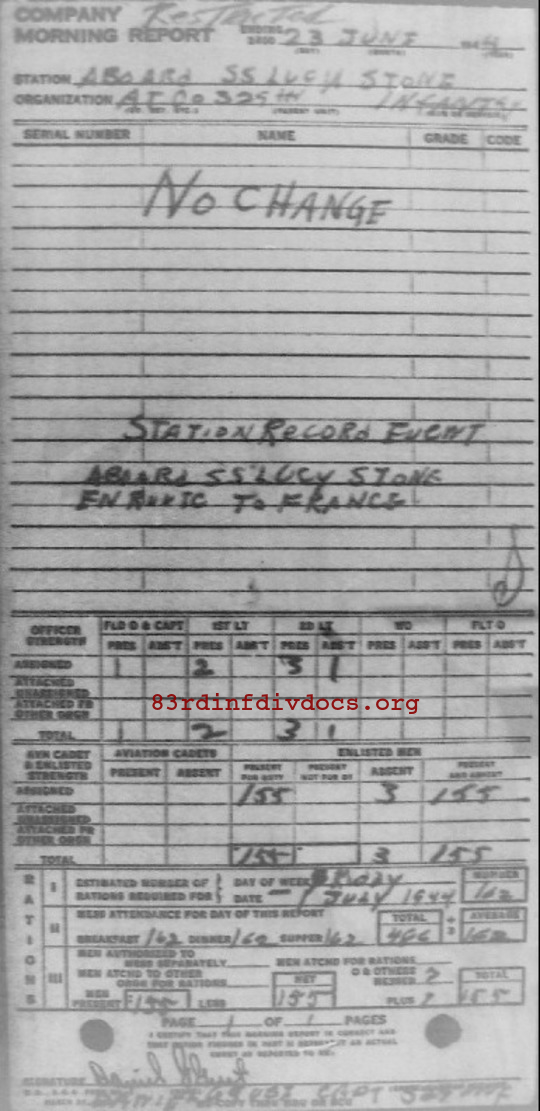 COMPANY Restricted
MORNING REPORT ENDING 2400 23 JUNE 1944
STATION ABOARD SS LUCY STONE
ORGANIZATION AT Co 329TH INFANTRY
SERIAL NUMBER NAME GRADE CODE
NO CHANGE
STATION RECORD EVENT
ABOARD SS LUCY STONE
EN ROUTE TO FRANCE
OFFICER STRENGTH FLD O & CAPT 1ST LT 2D LT WO FLT O
PRES ABS'T PRES ABS'T PRES ABS'T PRES ABS'T PRES ABS'T
ASSIGNED 1 2 3 1
ATTACHED UNASSIGNED
ATTACHED FR OTHER ORGN
83rdinfdivdocs.org
TOTAL 1 2 3 1
AVN CADET & ENLISTED STRENGTH AVIATION CADETS ENLISTED MEN
PRESENT ABSENT PRESENT FOR DUTY PRESENT NOT FOR DY ABSENT PRESENT AND ABSENT
ASSIGNED 155 3 155
ATTACHED UNASSIGNED
ATTACHED FR OTHER ORGN
TOTAL 155 3 155
RATIONS
I ESTIMATED NUMBER OF RATIONS REQUIRED FOR DAY OF WEEK
DATE 1 July 1944 NUMBER 162
II MESS ATTENDANCE FOR DAY OF THIS REPORT TOTAL ÷ 3 AVERAGE
BREAKFAST 162 DINNER 162 SUPPER 162 486 162
III MEN AUTHORIZED TO MESS SEPARATELY MEN ATCHD FOR RATIONS
MEN ATCHD TO OTHER ORGN FOR RATIONS NET O & OTHERS MESSED 7 TOTAL
MEN PRESENT 155 LESS 155 PLUS 7
PAGE 1 OF 1 PAGES
I CERTIFY THAT THIS MORNING REPORT IS CORRECT AND
THAT RATION FIGURES IN PART III REPRESENT AN ACTUAL
COUNT AS REPORTED TO ME.
SIGNATURE
CAPT